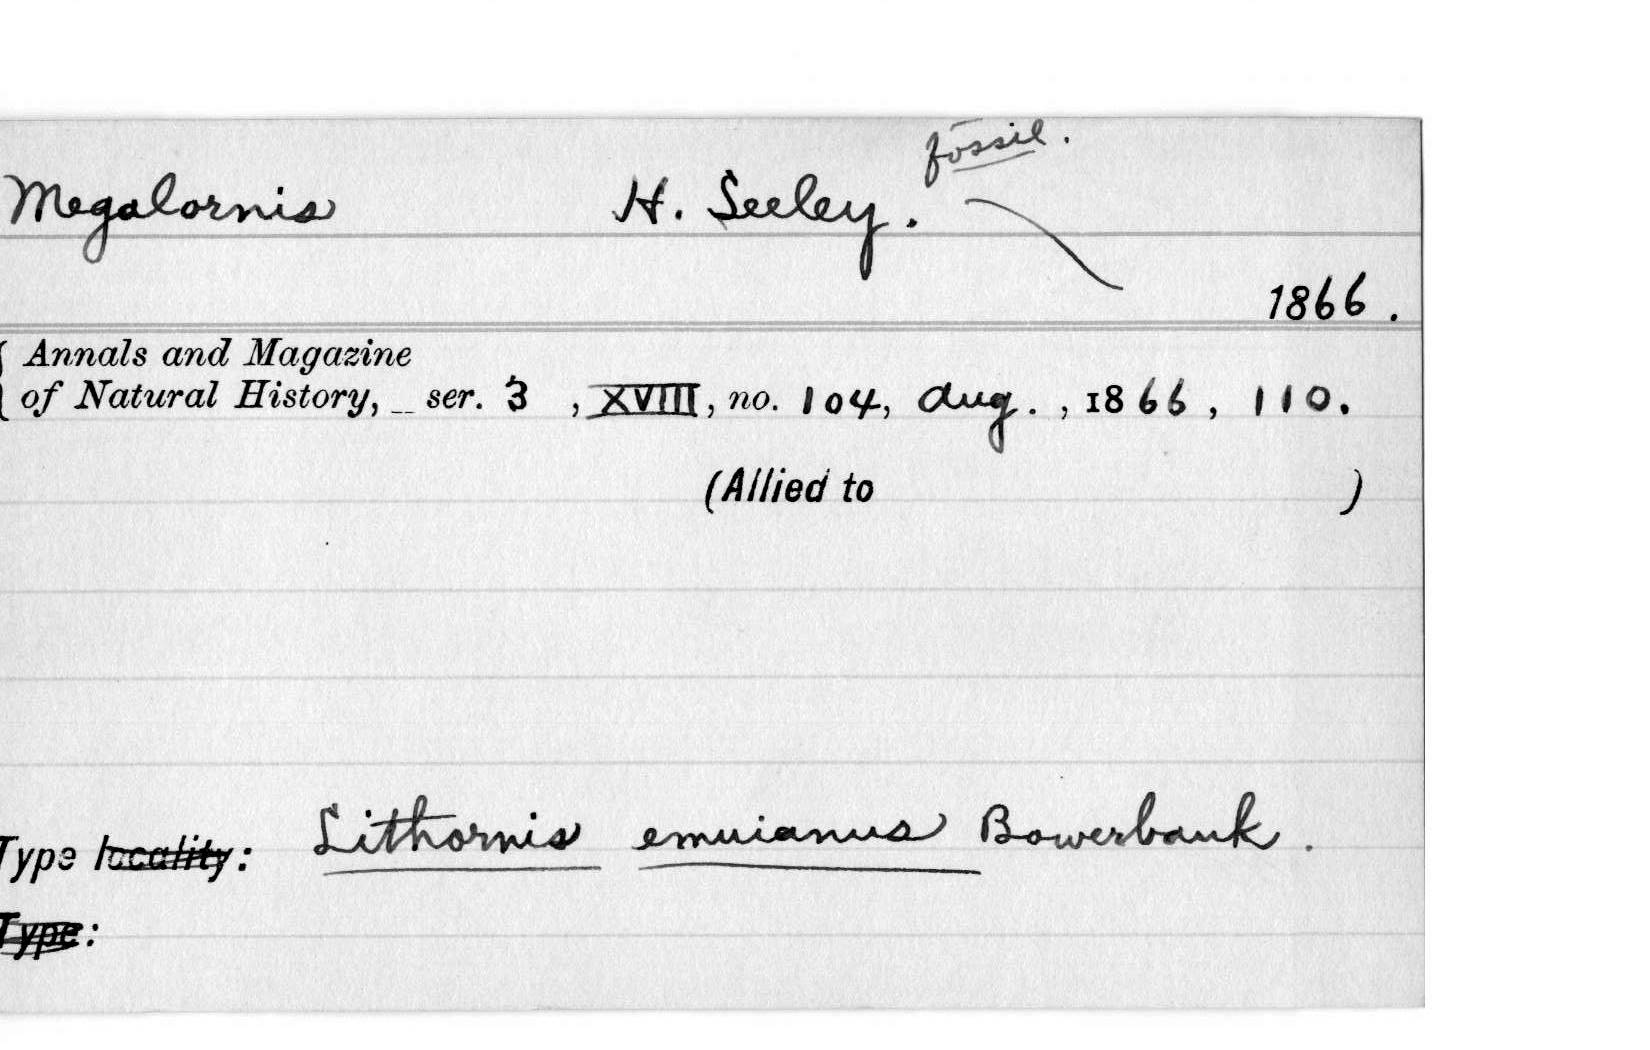 fossil.
Megalornis H. Seeley.
1866.
{ Annals and Magazine
of Natural History, _ ser. 3 , XVIII, no. 104, Aug. , 1866 , 110.
(Allied to )
Type locality: Lithornis emuianus Bowerbank.
Type: